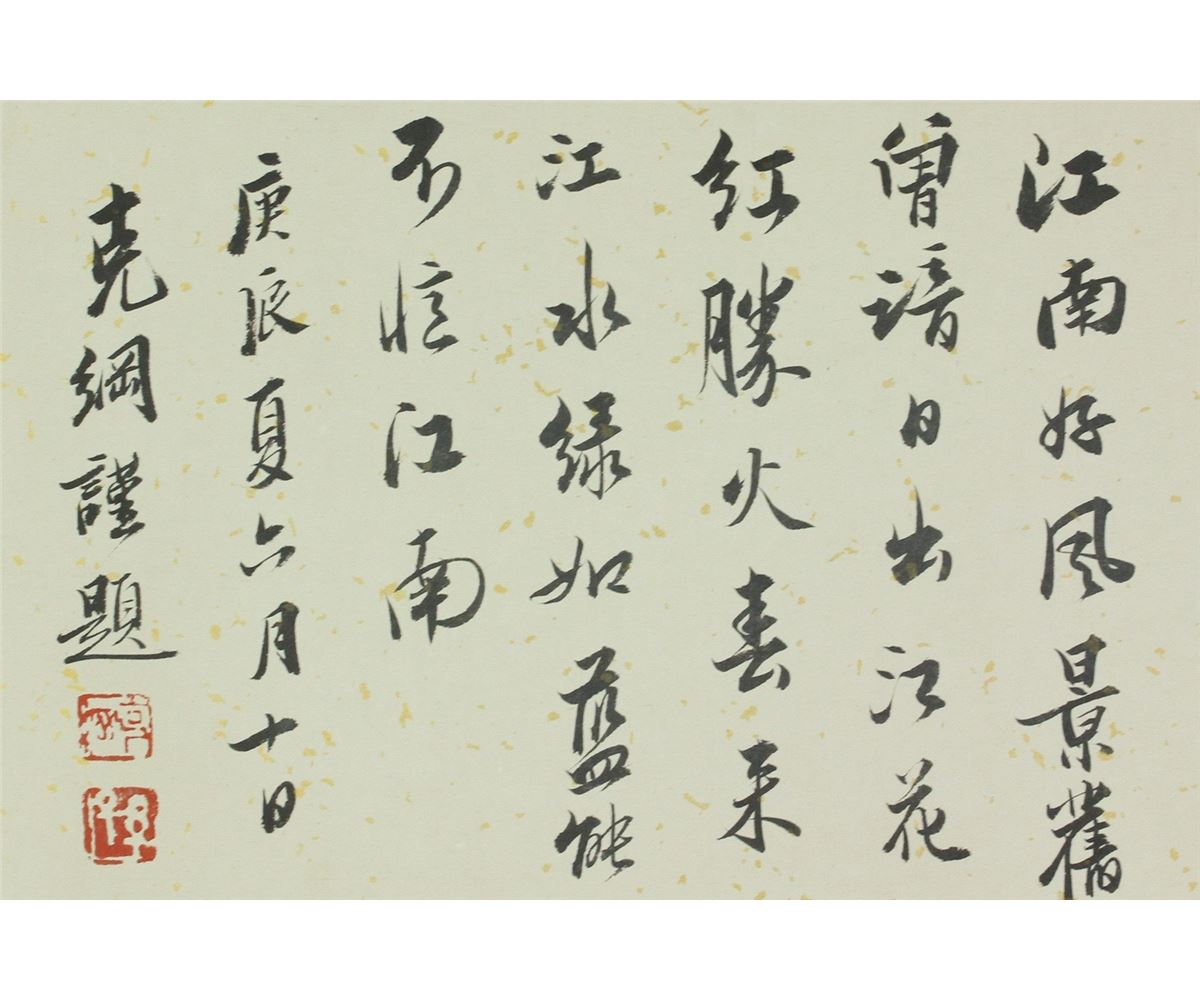 江南好風景舊
曾諳日出江花
紅勝火春来
江水緑如藍能
不憶江南
庚辰夏六月十日
克綱謹題